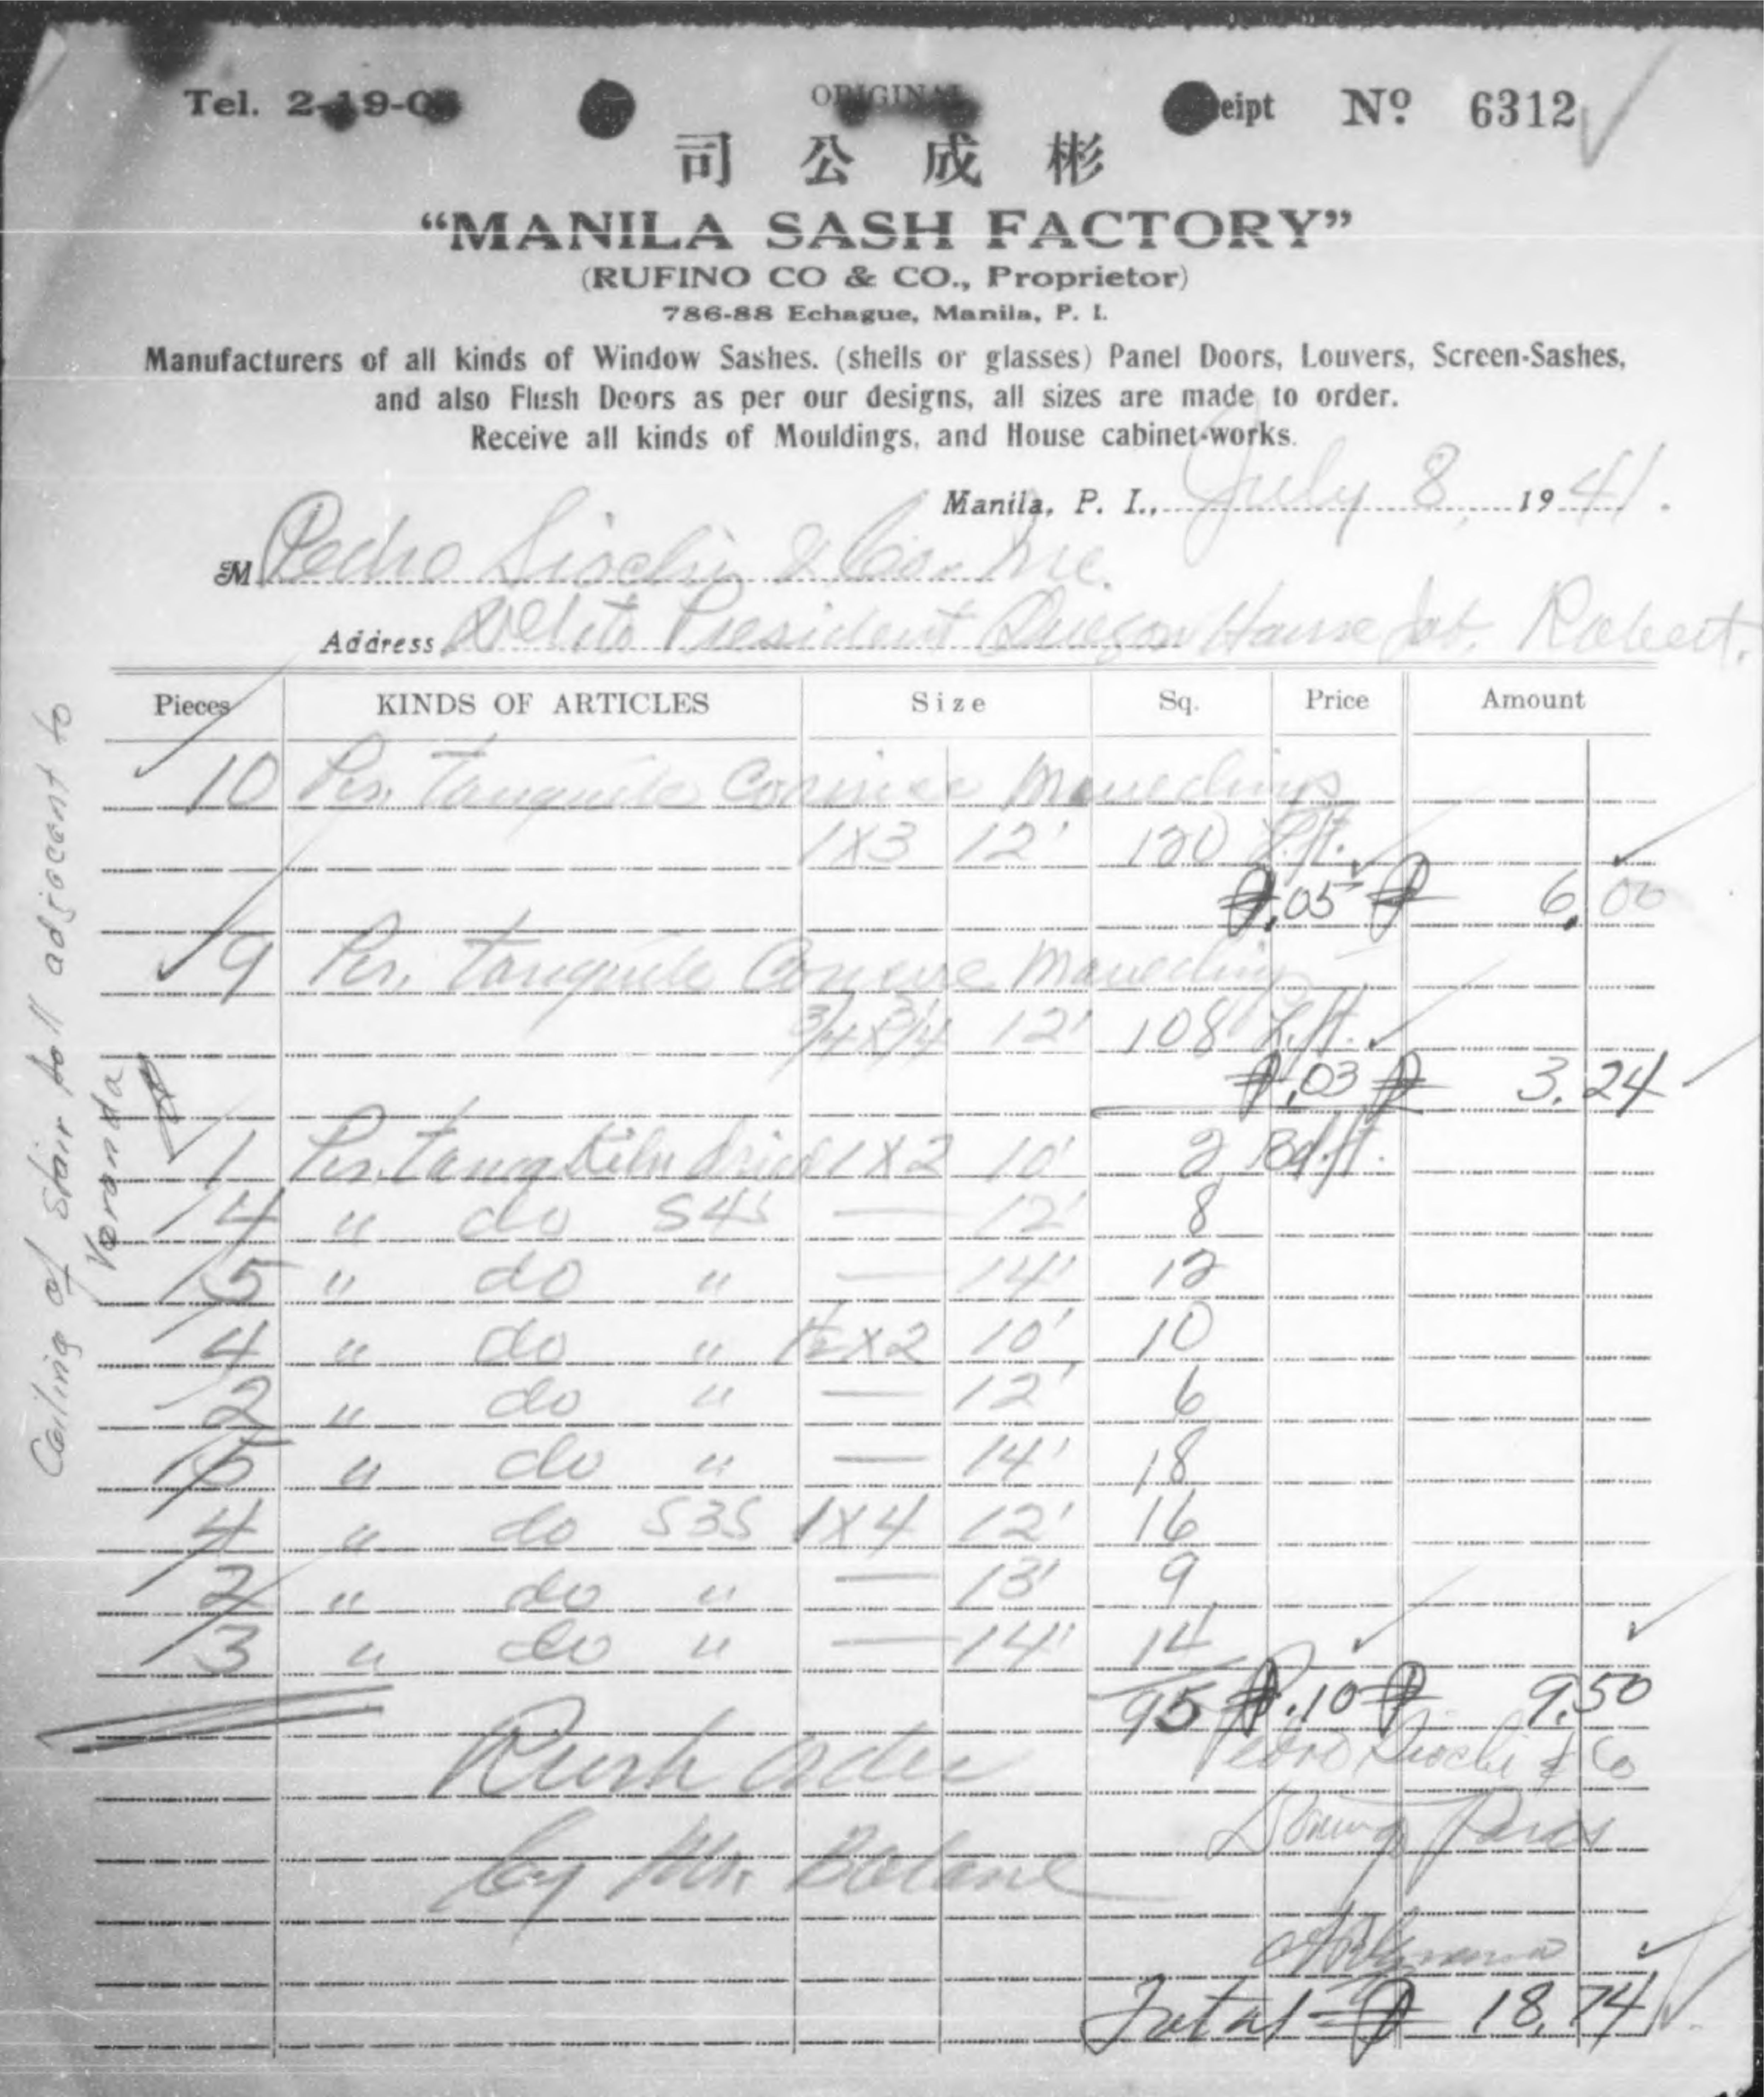 Tel. 2-19-0
ORIGINAL
eipt Nº 6312
司公成彬
“MANILA SASH FACTORY”
(RUFINO CO & CO., Proprietor)
786-88 Echague, Manila, P. I.
Manufacturers of all kinds of Window Sashes. (shells or glasses) Panel Doors, Louvers, Screen-Sashes,
and also Flush Doors as per our designs, all sizes are made to order.
Receive all kinds of Mouldings, and House cabinet-works.
Manila, P. I., July 8, 1941.
M Pedro Siochi & Co. Inc.
Address President Quezon House Job. Robert.
Pieces KINDS OF ARTICLES Size Sq. Price Amount
10 Pcs. Tanguile Cornice
1x3 12' 120 L.ft.
₱.05 ₱ 6.00
9 Pcs. Tanguile
3/4x3/4 12' 108 L.ft.
₱.03 ₱ 3.24
1 Pcs. Tang Kiln dried 1x2 10' 2 Bd.ft.
4 " do S4S — 12' 8
5 " do " — 14' 12
4 " do " x2 10' 10
2 " do " — 12' 6
5 " do " — 14' 18
4 " do S3S 1x4 12' 16
2 " do " — 13' 9
3 " do " — 14' 14
95 ₱.10 ₱ 9.50
Rush order
by Mr.
Pedro Siochi & Co
Total ₱ 18.74
Ceiling of stair hall adjacent to
Veranda